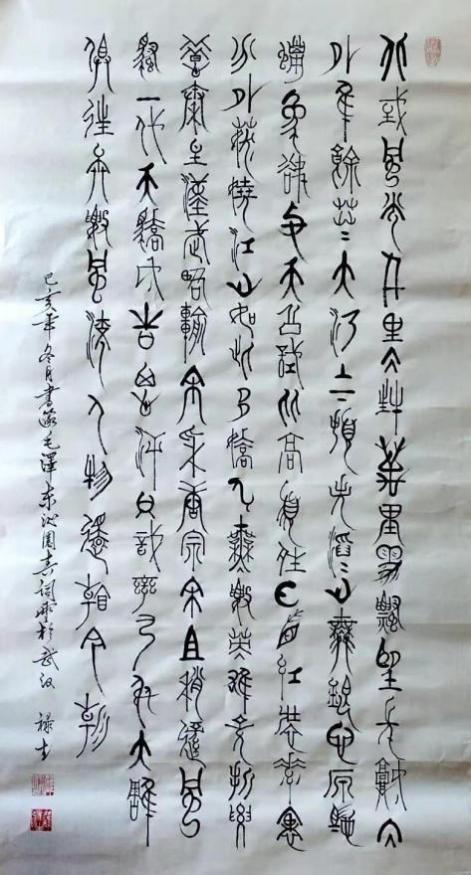 北國風光千里冰封萬里雪飄望長城內
外惟餘莽〻大河上下頓失滔〻山舞銀蛇原馳
蠟象欲與天公試比高須晴日看紅裝素裹
分外妖嬈江山如此多嬌引無數英雄競折腰
惜秦皇漢武略輸文采唐宗宋祖稍遜風
騷一代天驕成吉思汗只識彎弓射大雕
俱往矣數風流人物還看今朝
己亥年冬月書毛澤東沁園春詞雪於武汉